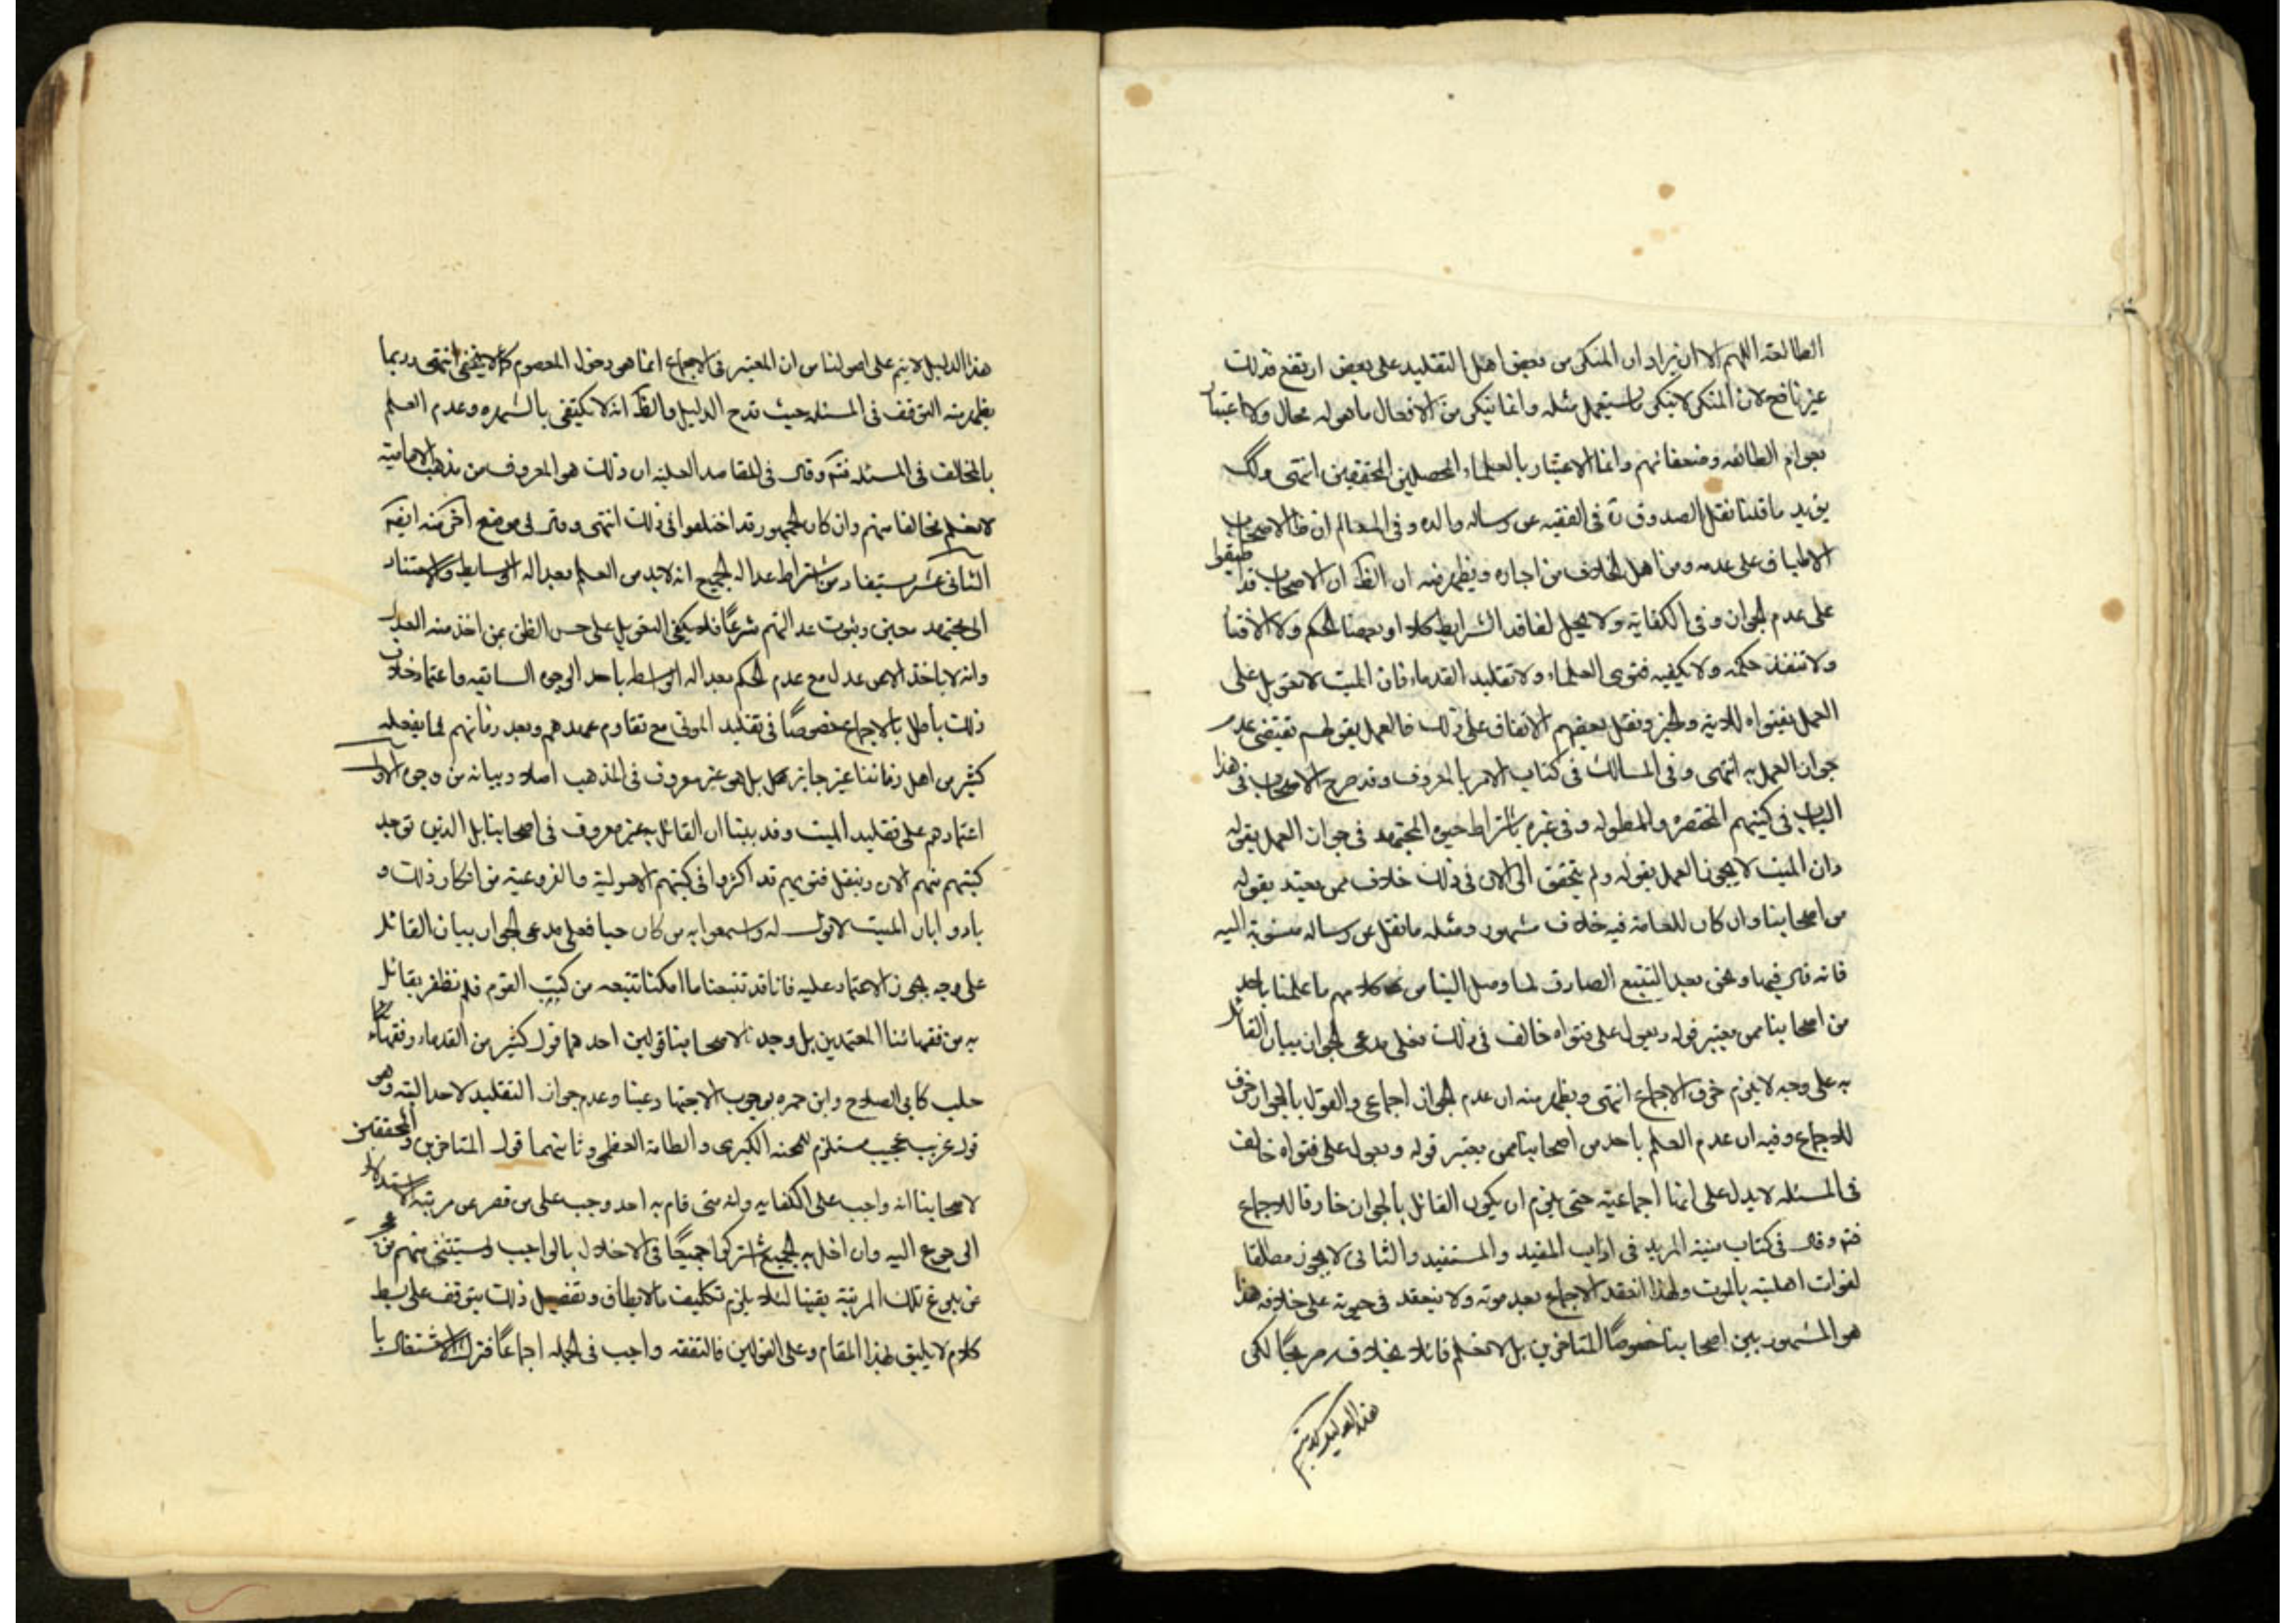 الطالعة اللهم الا ان يراد ان المنكر من بعض اهل التقليد على بعض ارتفع فذلك
غير نافع لان المنكر لا ينكر ما يستعمل مثله وانما ينكر من الافعال ما هو له محال ولا اعتبار
بعوام الطائفه وضعفائهم وانما الاعتبار بالعلماء المحصلين المحققين انتهى ولك
يؤيد ما قلنا نقل الصدوق ره فى الفقيه عن رساله والده وفى المعالم ان ظ الاصحاب
الاطباق على عدمه ومن اهل الخلاف من اجازه ويظهر منه ان الظ ان الاصحاب قد اطبقوا
على عدم الجواز وفى الكفايه ولا يحل لفاقد الشرايط كلا او بعضا الحكم ولا الافتا
ولا تنفذ حكمه ولا يكفيه فتوى العلماء ولا تقليد القدماء فان الميت لا تعويل على
العمل بفتواه للاية والخبر ونقل بعضهم الاتفاق على ذلك فالعمل بقولهم تقتضى عدم
جواز العمل به انتهى وفى المسالك فى كتاب الامر بالمعروف وقد صرح الاصحاب فى هذا
الباب فى كتبهم المختصره والمطوله وفى غيره باشتراط حيوه المجتهد فى جواز العمل بقوله
وان الميت لا يجوز العمل بقوله ولم يتحقق الى الان فى ذلك خلاف ممن يعتد بقوله
من اصحابنا وان كان للعامة فيه خلاف مشهور ومثله ما نقل عن رساله منسوبة اليه
فانه قال فيها ونحن بعد التتبع الصادق لما وصل الينا من كلامهم ما علمنا باحد
من اصحابنا ممن يعتبر قوله ويعول على فتواه خالف فى ذلك فعلى مدعى الجواز بيان القائل
به على وجه لا يلزم خرق الاجماع انتهى ويظهر منه ان عدم الجواز اجماعى والقول بالجواز خرق
للاجماع وفيه ان عدم العلم باحد من اصحابنا ممن يعتبر قوله ويعول على فتواه خالف
فى المسئله لا يدل على انها اجماعية حتى يلزم ان يكون القائل بالجواز خارقا للاجماع
فتم وقال فى كتاب منية المريد فى اداب المفيد والمستفيد والثانى لا يجوز مطلقا
لفوات اهليته بالموت ولهذا انعقد الاجماع بعد موته ولا ينعقد فى حيوته على خلافه هذا
هو المشهور بين اصحابنا خصوصا المتاخرين بل لا نعلم قائلا بخلافه صريحا لكن
هذا الدليل لا يتم
هذا الدليل لا يتم على اصولنا من ان المعتبر فى الاجماع انما هو دخول المعصوم كما لا يخفى انتهى وربما
يظهر منه التوقف فى المسئله حيث قدح الدليل والظ انه لا يكتفى بالشهره وعدم العلم
بالمخالف فى المسئله فتم وقال فى المقاصد العلية ان ذلك هو المعروف من مذهب الاماميه
لا نعلم مخالفا منهم وان كان الجمهور قد اختلفوا فى ذلك انتهى وقال فى موضع اخر منه ايضا
الثانى عشر يستفاد من اشتراط عداله الجميع انه لا بد من العلم بعداله الوسايط والاستناد
الى مجتهد معين وثبوت عدالتهم شرعا فلا يكفى التعويل على حسن الظن بمن اخذ منه العدل
وانه لا ياخذ الا من عدل مع عدم الحكم بعداله الواسطه باحد الوجوه السابقه واعتماد خلاف
ذلك باطل بالاجماع خصوصا فى تقليد الموتى مع تقادم عهدهم وبعد زمانهم فما يفعله
كثير من اهل زماننا غير جايز بل هو غير معروف فى المذهب اصلا وبيانه من وجوه الاول
اعتمادهم على تقليد الميت وقد بينا ان القائل به غير معروف فى اصحابنا بل الذين توجد
كتبهم منهم الان وينقل فتويهم قد اكثروا فى كتبهم الاصولية والفروعية من انكار ذلك و
نادوا بان الميت لا قول له واسمعوا به من كان حيا فعلى مدعى الجواز بيان القائل
على وجه يجوز الاعتماد عليه فانا قد تتبعنا ما امكننا تتبعه من كتب القوم فلم نظفر بقائل
به من فقهائنا المعتمدين بل وجدنا لاصحابنا قولين احدهما قول كثير من القدماء وفقهاء
حلب كابى الصلاح وابن حمزه بوجوب الاجتهاد عينا وعدم جواز التقليد لاحد البته وهو
قول غريب عجيب مستلزم للمحنه الكبرى والطامة العظمى وثانيهما قول المتاخرين والمحققين
لاصحابنا انه واجب على الكفايه وانه متى قام به احد وجب على من قصر عن مرتبة الاستدلال
الرجوع اليه وان اخل به الجميع اشتركوا جميعا فى الاخلال بالواجب ويستثنى منهم من عجز
عن بلوغ تلك المرتبة يقينا لئلا يلزم تكليف ما لا يطاق وتفصيل ذلك يتوقف على بسط
كلام لا يليق بهذا المقام وعلى القولين فالتفقه واجب فى الجمله اجماعا فترك الاشتغال با